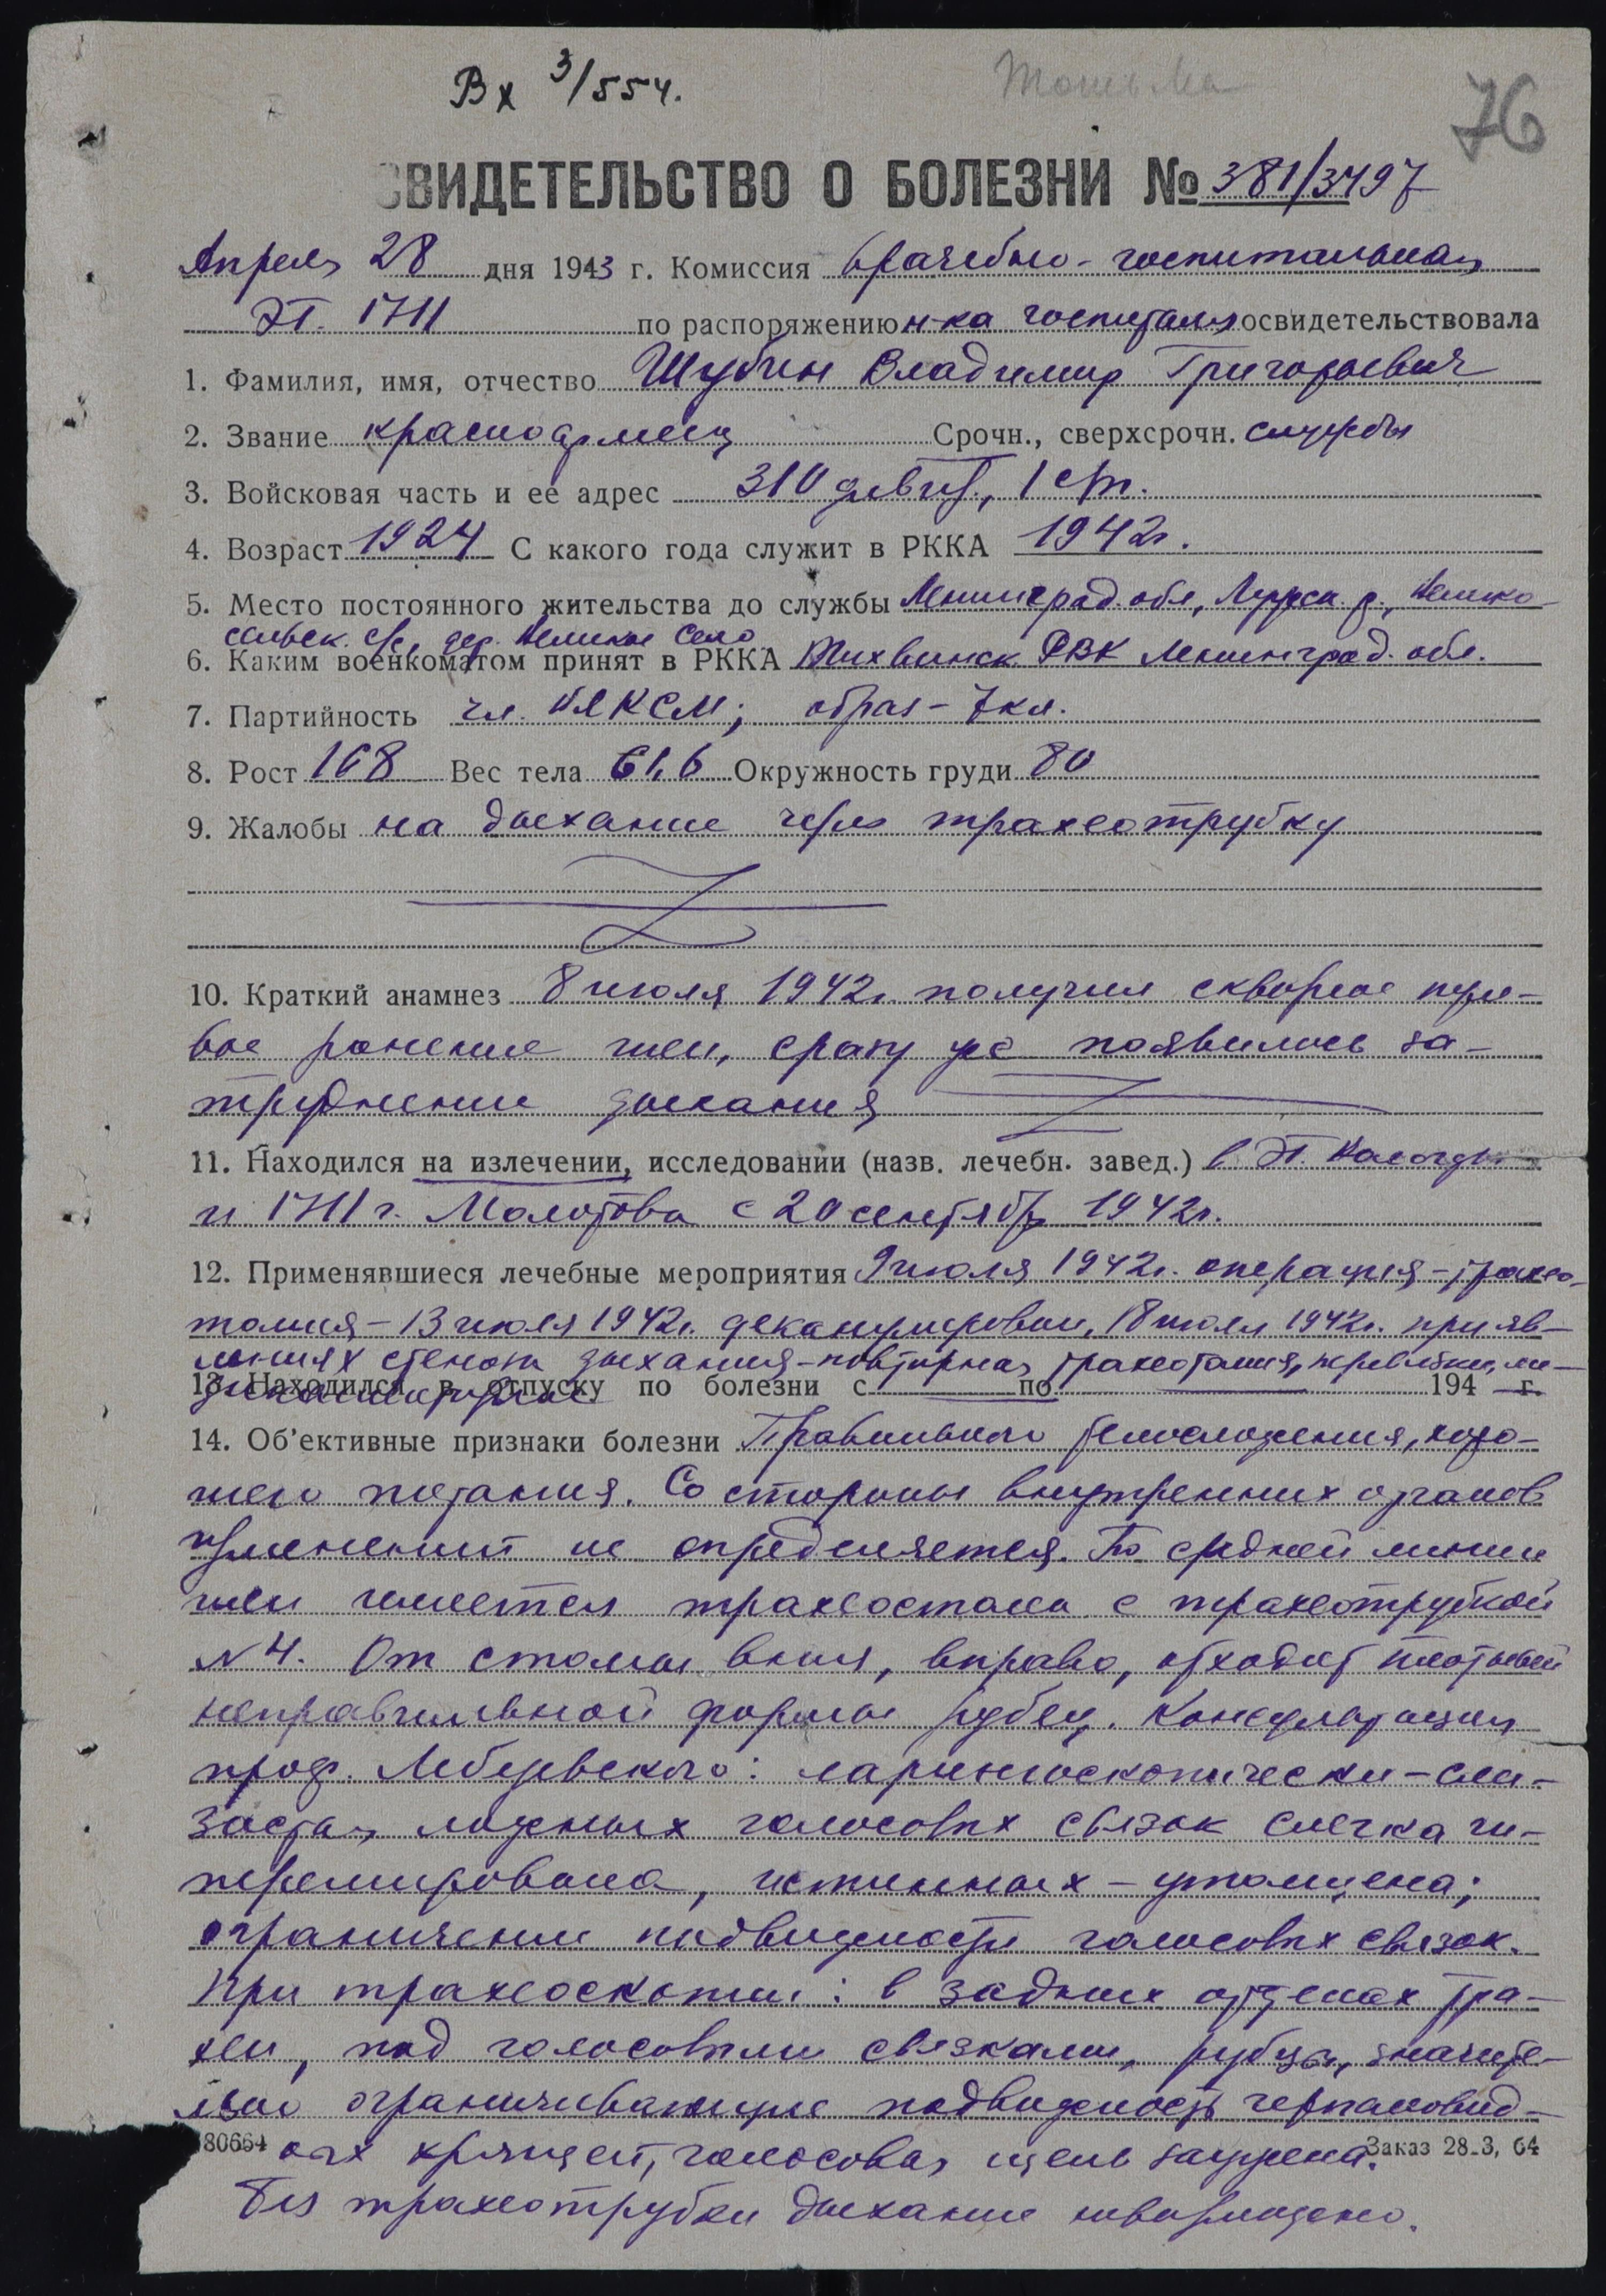 Вх 3/554.
76
СВИДЕТЕЛЬСТВО О БОЛЕЗНИ № 381/3497
Апреля 28 дня 1943 г. Комиссия врачебно-госпитальная
ЭГ. 1711 по распоряжению н-ка госпиталя освидетельствовала
1. Фамилия, имя, отчество Шубин Владимир Григорьевич
2. Звание красноармеец Срочн., сверхсрочн. службы
3. Войсковая часть и ее адрес 310 див., 1
4. Возраст 1924 С какого года служит в РККА 1942г.
5. Место постоянного жительства до службы Ленинград. обл,
сельск. с/с, дер. Великое Село
6. Каким военкоматом принят в РККА Тихвинск РВК Ленинград. обл.
7. Партийность чл. ВЛКСМ; образ - 7 кл.
8. Рост 168 Вес тела 61,6 Окружность груди 80
9. Жалобы на дыхание через трахеотрубку
10. Краткий анамнез 8 июля 1942г. получил сквозное пуле-
вое ранение шеи, сразу же появилось за-
труднение дыхания
11. Находился на излечении, исследовании (назв. лечебн. завед.) в ЭГ. Вологды
и 1711 г. Молотова с 20 сентября 1942г.
12. Применявшиеся лечебные мероприятия 9 июля 1942г. операция - трахео-
томия - 13 июля 1942г. деканулирован, 18 июля 1942г. при яв-
лениях стеноза дыхания - повторная трахеотомия, перевязки, ме-
дикаментозное.
13. Находился в отпуску по болезни с по 194 г.
14. Об'ективные признаки болезни Правильного телосложения, хоро-
шего питания. Со стороны внутренних органов
изменений не определяется. По средней линии
шеи имеется трахеостома с трахеотрубкой
№ 4. От стомы вниз, вправо, отходит плотный
неправильной формы рубец. Консультация
проф. Лебедевского: ларингоскопически - сли-
зистая ложных голосовых связок слегка ги-
перемирована, истинных - утолщена;
ограничение подвижности голосовых связок.
При трахеоскопии: в задних отделах тра-
хеи, под голосовыми связками, рубцы, значите-
льно ограничивающие подвижность черпаловид-
ных хрящей, голосовая щель заужена.
80664 Заказ 28-3, 64
Без трахеотрубки дыхание невозможно.